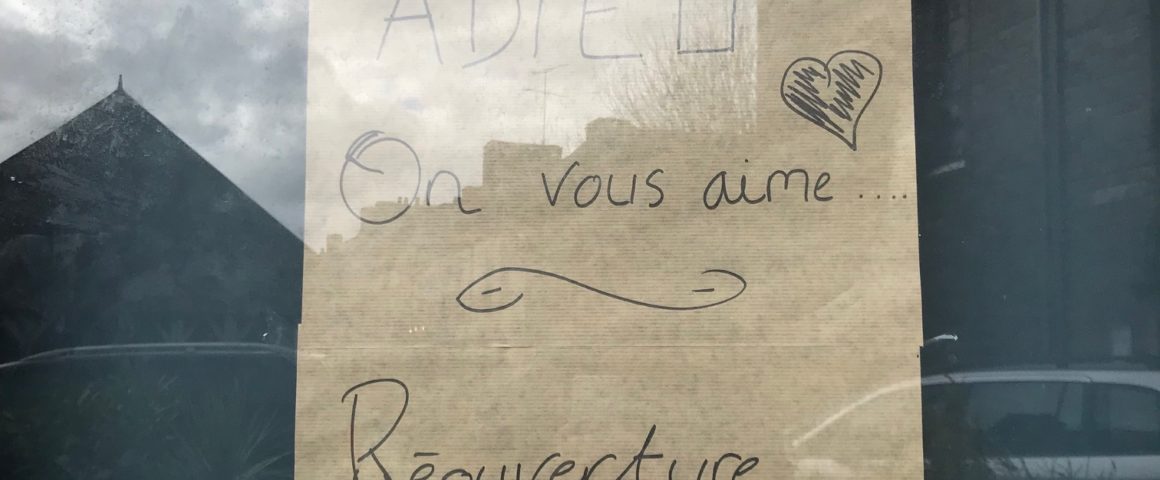 ADIEU
On vous aime ....
Réouverture